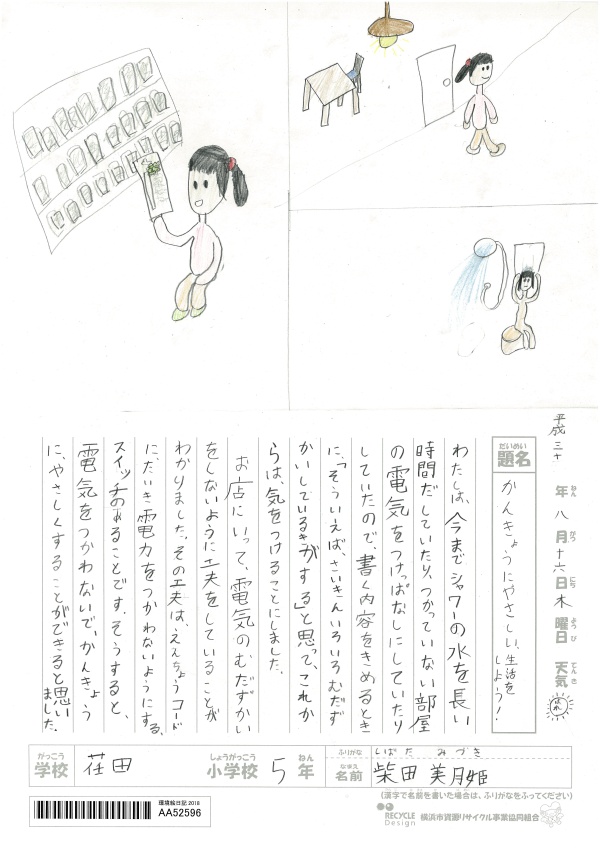 平成三十年八月十六日木曜日 天気 はれ
ねん がつ にち ようび てんき
だいめい
題名
かんきょうにやさしい、生活をしよう！
わたしは、今までシャワーの水を長い
時間だしていたり、つかっていない部屋
の電気をつけっぱなしにしていたり
していたので、書く内容をきめるとき
に、「そういえば、さいきんいろいろむだず
かいしている気がする」と思って、これか
らは、気をつけることにしました。
お店にいって、電気のむだずかい
をしないように工夫をしていることが
わかりました。その工夫は、えんちょうコード
に、たいき電力をつかわないようにする、
スイッチのあることです。そうすると、
電気をつかわないで、かんきょう
に、やさしくすることができると思い
ました。
がっこう
学校
荏田
しょうがっこう
小学校
5
ねん
年
ふりがな
しばた みづき
なまえ
名前
柴田 美月姫
(漢字で名前を書いた場合は、ふりがなをふってください)
環境絵日記 2018
AA52596
RECYCLE Design
横浜市資源リサイクル事業協同組合